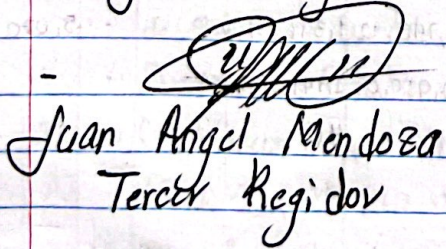 -
Juan Angel Mendoza
Tercer Regidor